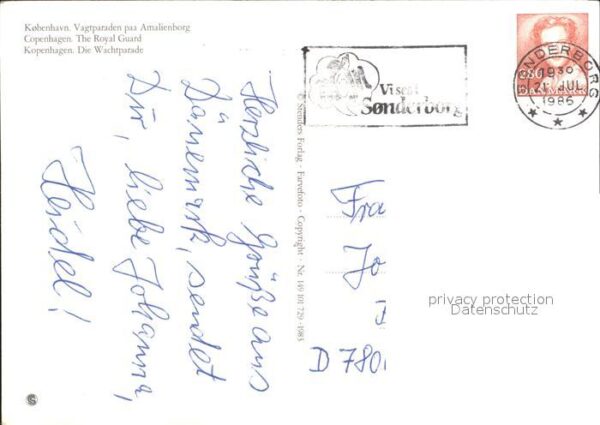 København. Vagtparaden paa Amalienborg
Copenhagen. The Royal Guard
Kopenhagen. Die Wachtparade
Herzliche Grüße aus
Dänemark, sendet
Dir, liebe Johanna,
Heidel!
© Stenders Forlag · Farvefoto · Copyright · Nr. 149 101 729 · 1983
Vi ses i
Sønderborg
SØNDERBORG
1930
21 JUL.
1986
Fra
Jo
D 780
privacy protection
Datenschutz